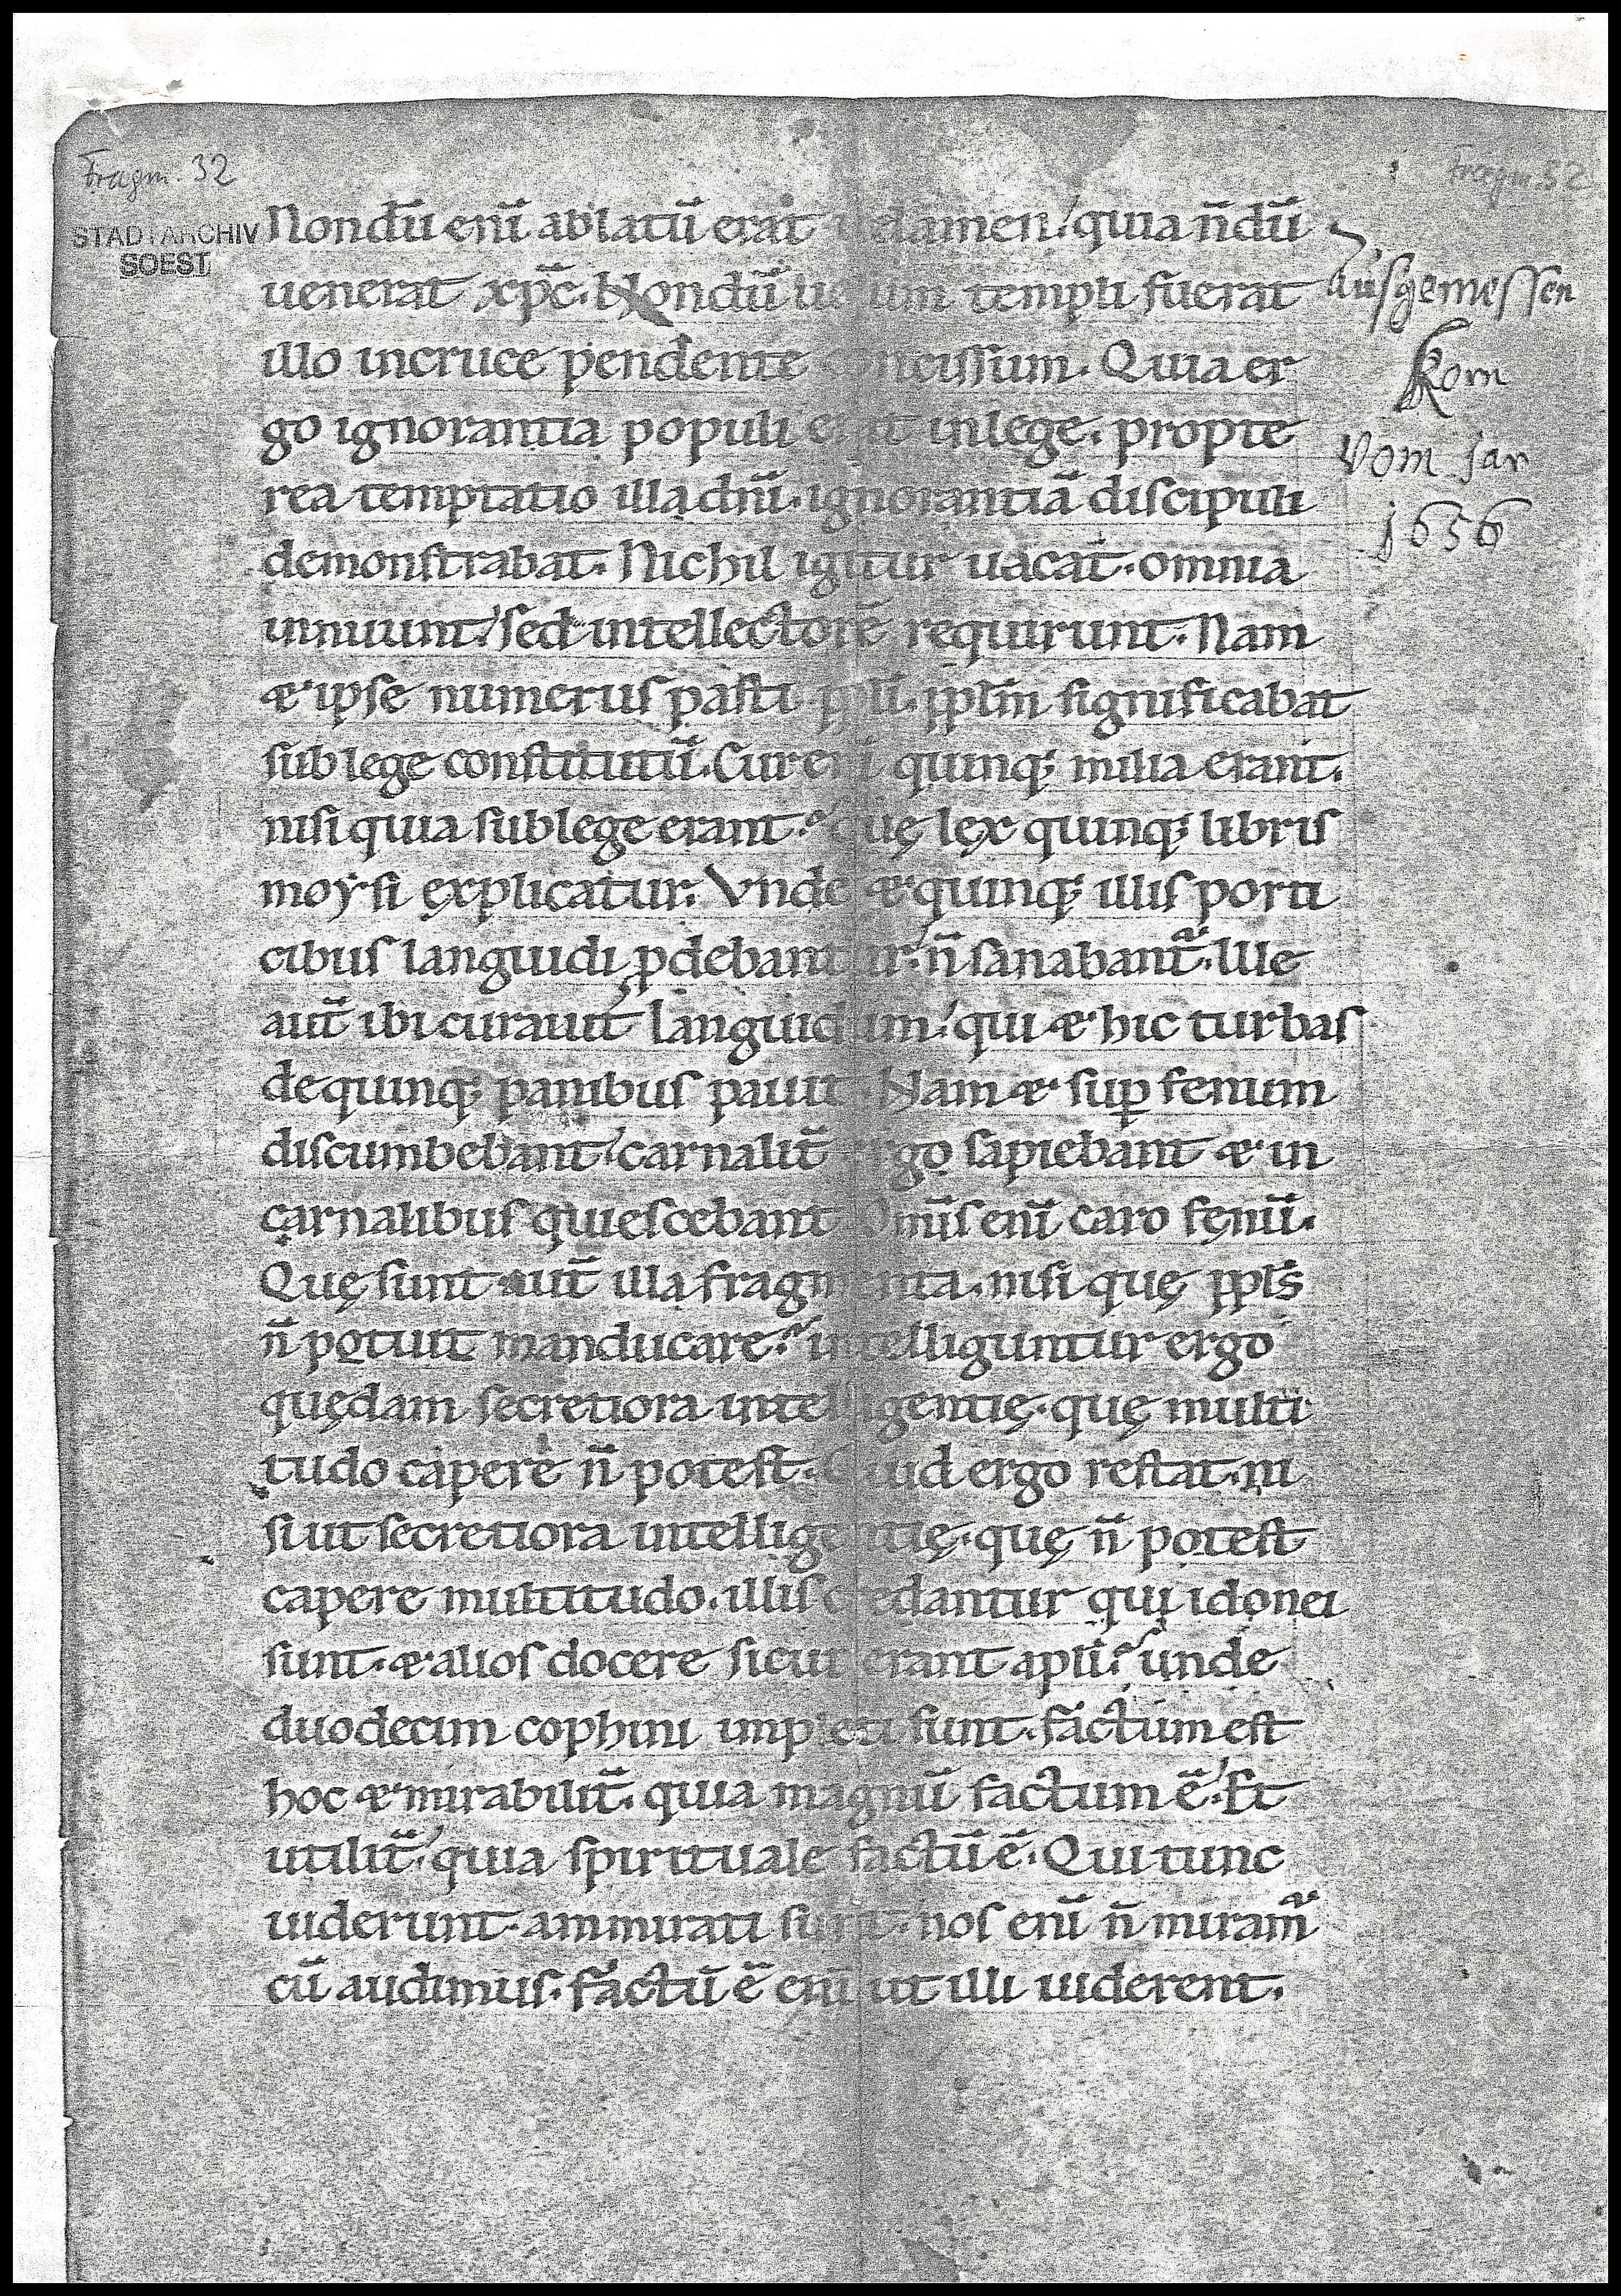 Fragm. 32
Fragm. 32
STADTARCHIV
SOEST
Nondū enī ablatū erat uelamen, quia n̄dū
uenerat xp̄c. Nondū uelum templi fuerat
illo incruce pendente concissum. Quia er
go ignorantia populi erat inlege. propte
rea temptatio illa dn̄i. ignorantiā discipuli
demonstrabat. Nichil igitur uacat. omnia
innuunt, sed intellectorē requirunt. Nam
& ipse numerus pasti ppl̄i. ppl̄m significabat
sub lege constitutū. Cur enī quinq; milia erant.
nisi quia sub lege erant? que lex quinq; libris
moysi explicatur. Vnde & quinq; illis porti
cibus languidi ꝓdebantur, n̄ sanabant᷑. Ille
aut̄ ibi curauit languidum, qui & hic turbas
de quinq; panibus pauit. Nam & suꝑ fenum
discumbebant, carnalit̄ ergo sapiebant & in
carnalibus quiescebant. Omīs enī caro fenū.
Quę sunt aut̄ illa fragmenta. nisi quę ppl̄s
n̄ potuit manducare? intelliguntur ergo
quędam secretiora intelligentię. quę multi
tudo capere n̄ potest. Quid ergo restat. ni
si ut secretiora intelligentię. quę n̄ potest
capere multitudo. illis credantur qui idonei
sunt. & alios docere sicut erant apl̄i? unde
duodecim cophini impleti sunt. factum est
hoc & mirabilit̄. quia magnū factum ē, Et
utilit̄, quia spirituale factū ē. Qui tunc
uiderunt. ammirati sunt. nos enī n̄ miram᷑
cū audimus. factū ē enī ut illi uiderent.
Ausgemessen
Korn
Vom Jar
1656